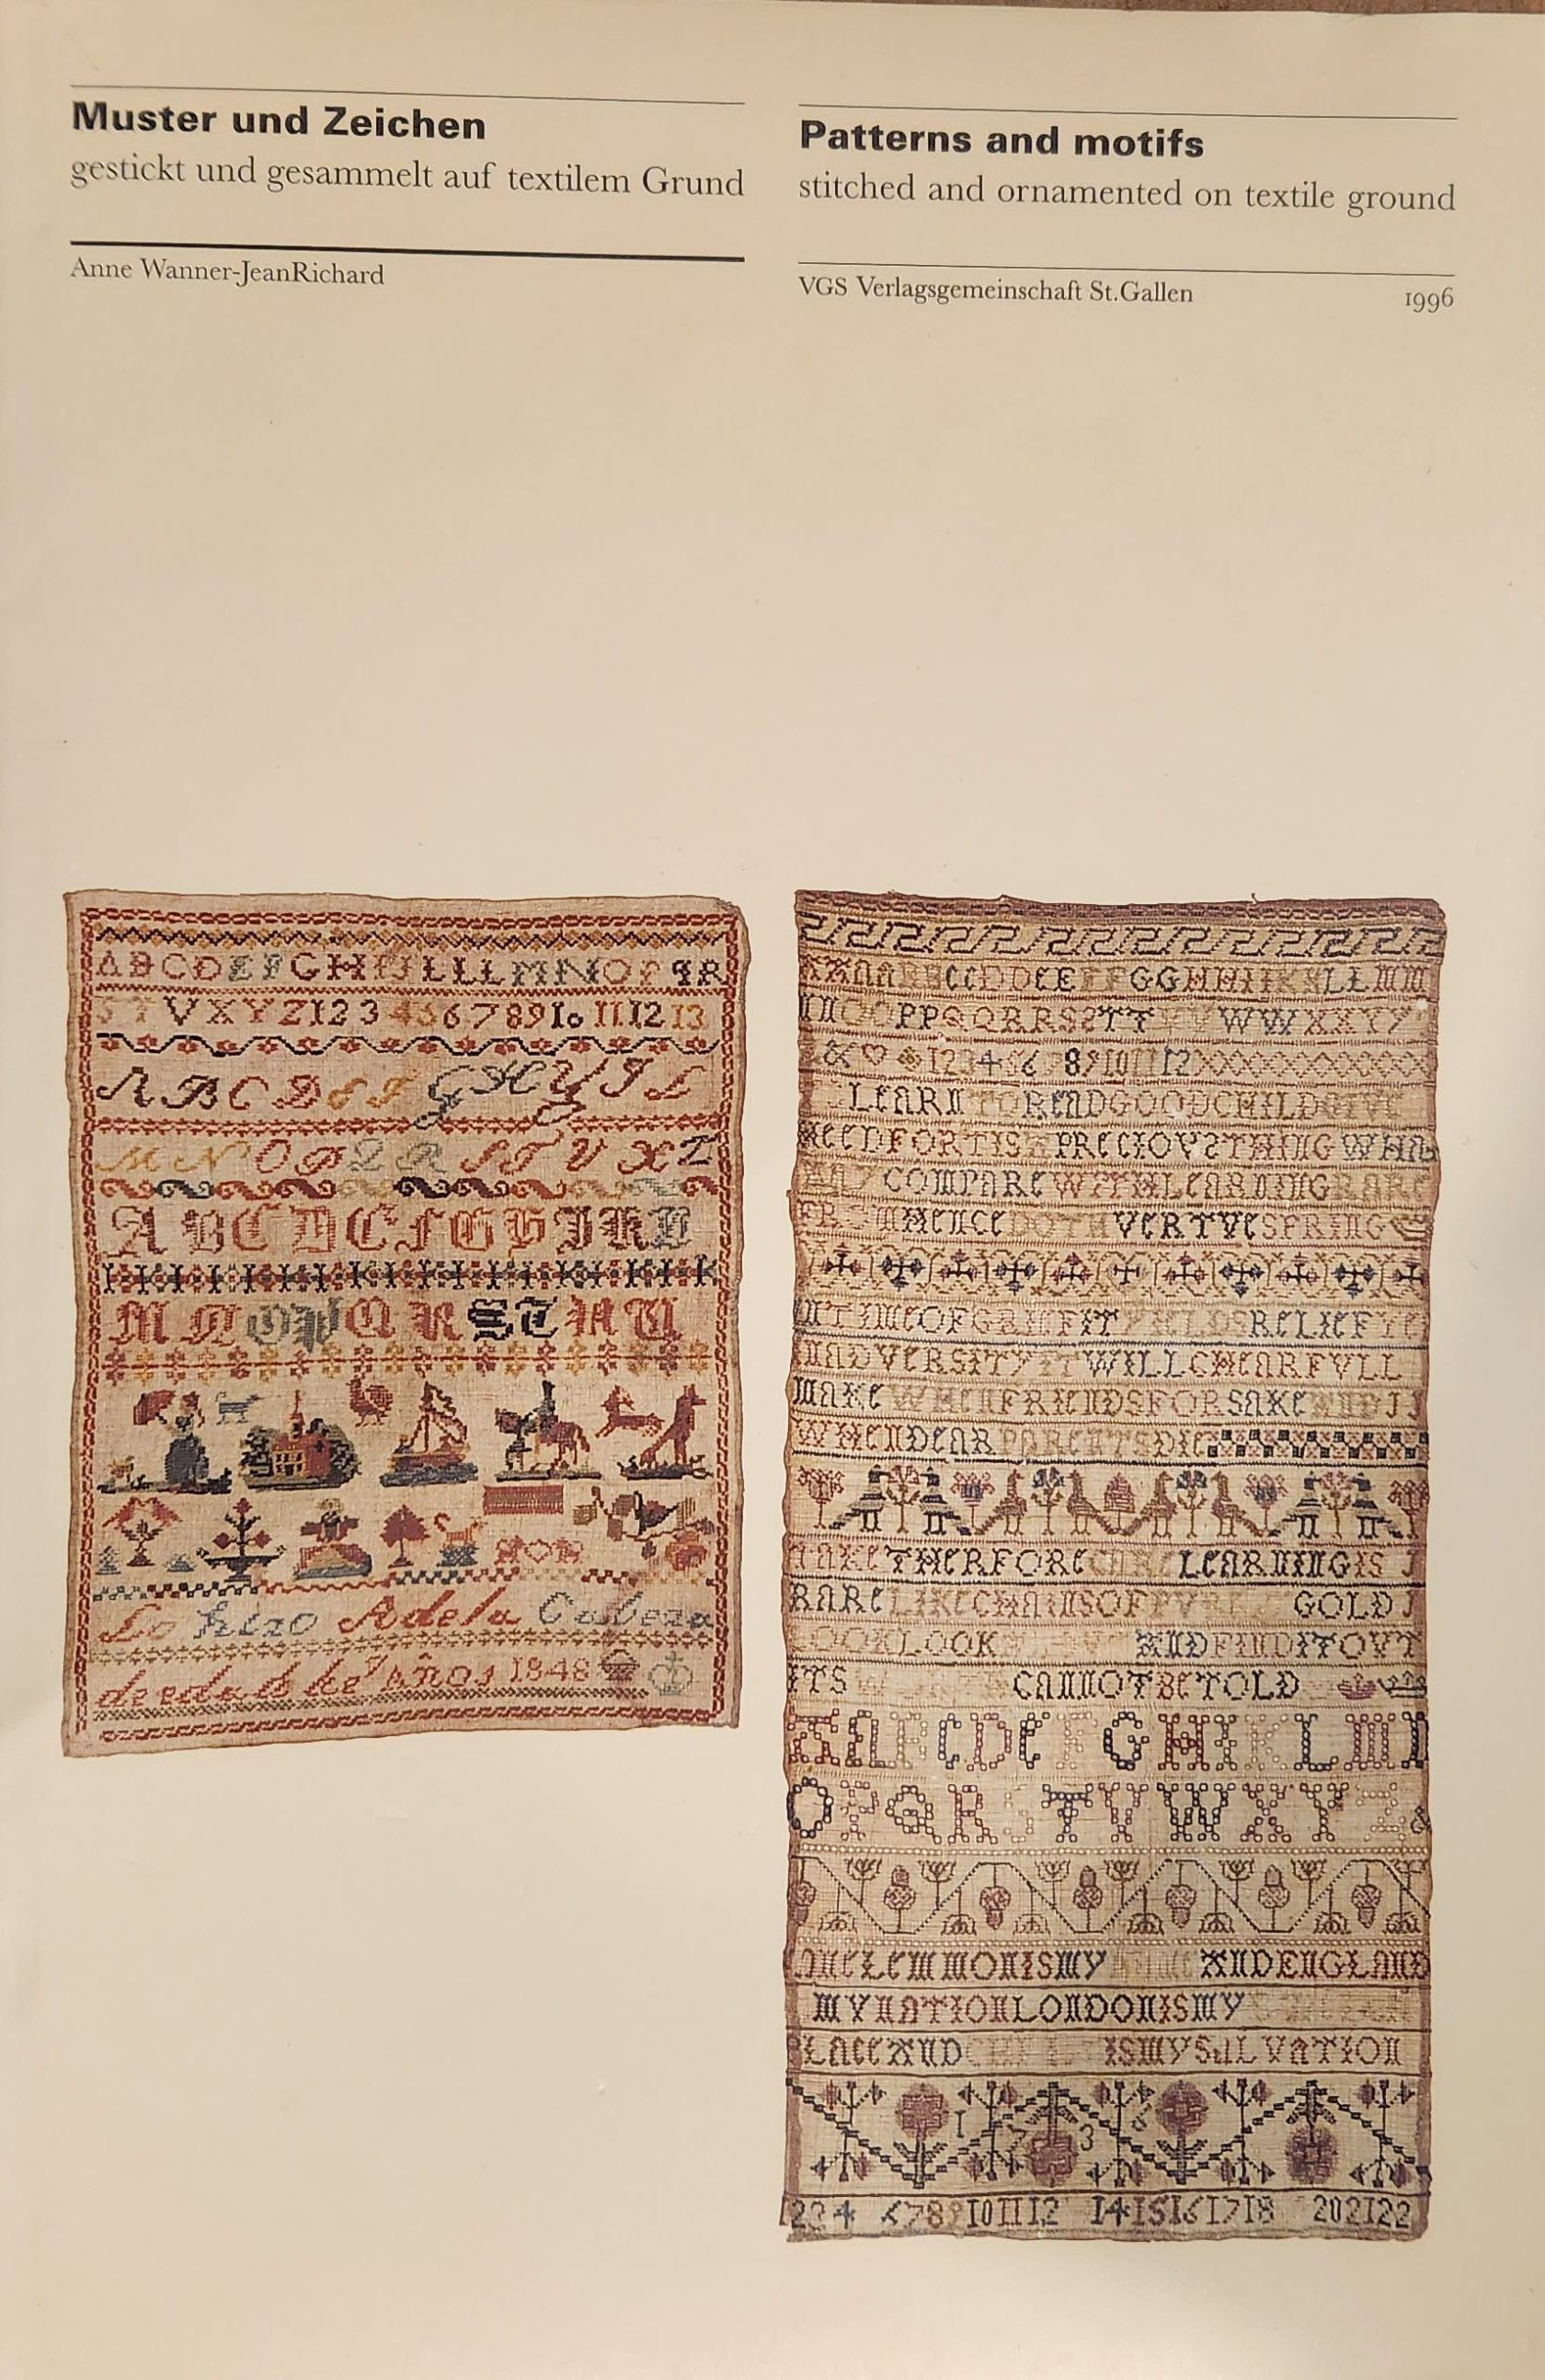 Muster und Zeichen
gestickt und gesammelt auf textilem Grund
Anne Wanner-JeanRichard
Patterns and motifs
stitched and ornamented on textile ground
VGS Verlagsgemeinschaft St.Gallen 1996
A B C D E F G H I J L L L M N N O P Q R
S T V X Y Z 1 2 3 4 5 6 7 8 9 10 11 12 13
A B C D E F G H Y J L
M N O P Q R S T V X Z
A B C D E F G H J K L
Lo hizo Adela Cabeza
de edad de 7 Años 1848
AAAABBCCDDEEFFGGHHIIKKLLMM
NNOOPPQQRRSSTTVVWWXXYY
& 123456 789101112
LEARN TO READ GOOD CHILD GIVE
HEED FOR TIS A PRECIOVS THING WHA
ANY COMPARE WITH LEARNING RARE
FROM HENCE DOTH VERTVE SPRING
IN TIME OF GRIEF IT YIELDS RELIEF
IN ADVERSITY IT WILL CHEAR FVLL
MAKE WHEN FRIENDS FORSAKE AND
WHEN DEAR PARENTS DIE
TAKE THERFORE CARE LEARNING IS
RARE LIKE CHAINS OF PVREST GOLD
LOOK LOOK AND FIND IT OVT
ITS CANNOT BE TOLD
A A B C D E F G H I K L M N
O P Q R S T V W X Y Z &
LEMMON IS MY NAME AND ENGLAND
MY NATION LONDON IS MY
PLACE AND CHRIST IS MY SALVATION
1 7 3 6
2 3 4 6 7 8 9 10 11 12 14 15 16 17 18 20 21 22